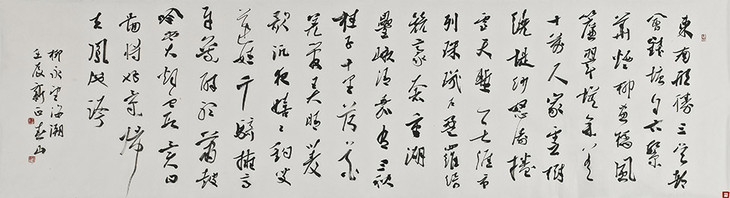 東南形勝三吳都
會錢塘自古繁
華煙柳畫橋風
簾翠幕參差
十萬人家雲樹
繞堤沙怒濤捲
雪天塹無涯市
列珠璣戶盈羅綺
競豪奢重湖
疊巘清嘉有三秋
桂子十里荷花
羌管弄晴菱
歌泛夜嬉嬉釣叟
蓮娃千騎擁高
牙乘醉聽簫鼓
吟賞煙霞異日
圖將好景歸
去鳳池誇
柳永望海潮
壬辰新正春山